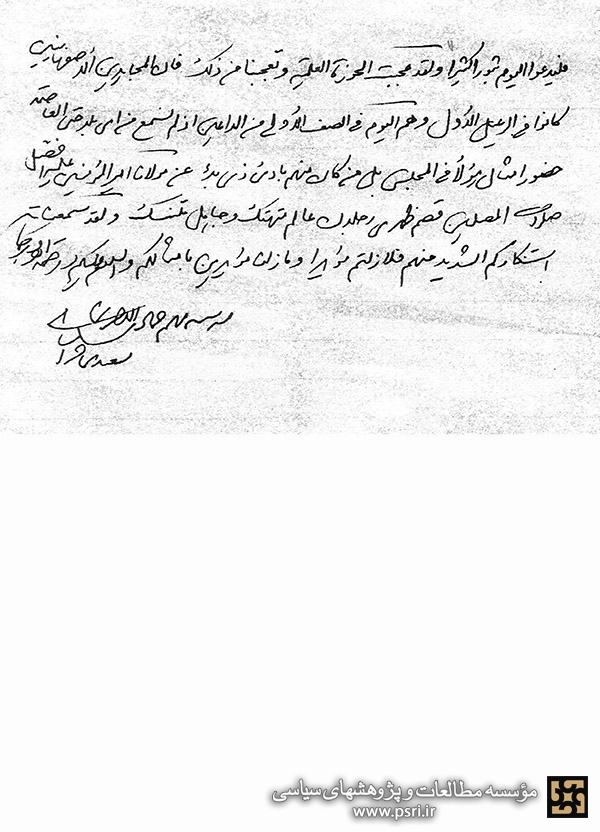 فلیدعوا الیوم ثبورا کثیرا ولقد عجبت الحوزة العلمیة وتعجبنا من ذلک فان المجاهدین الاصفهانیین
کانوا فی الرعیل الاول وهم الیوم فی الصف الاول من الداعین اذ لم نسمع من ای بلد حتی العاصمة
حضور امثال هؤلاء فی المجلس بلی من کان منهم بادئ ذی بدء عن مولانا امیر المؤمنین علیه افضل
صلوات المصلین قصم ظهری رجلان عالم متهتک وجاهل متنسک ولقد سمعنا
استنکارکم الشدید منهم فلازلتم مؤیدا ومازلنا مؤیدین بامثالکم والسلام علیکم ورحمة الله وبرکاته
مؤسسه مطالعات و پژوهشهای سیاسی
www.psri.ir